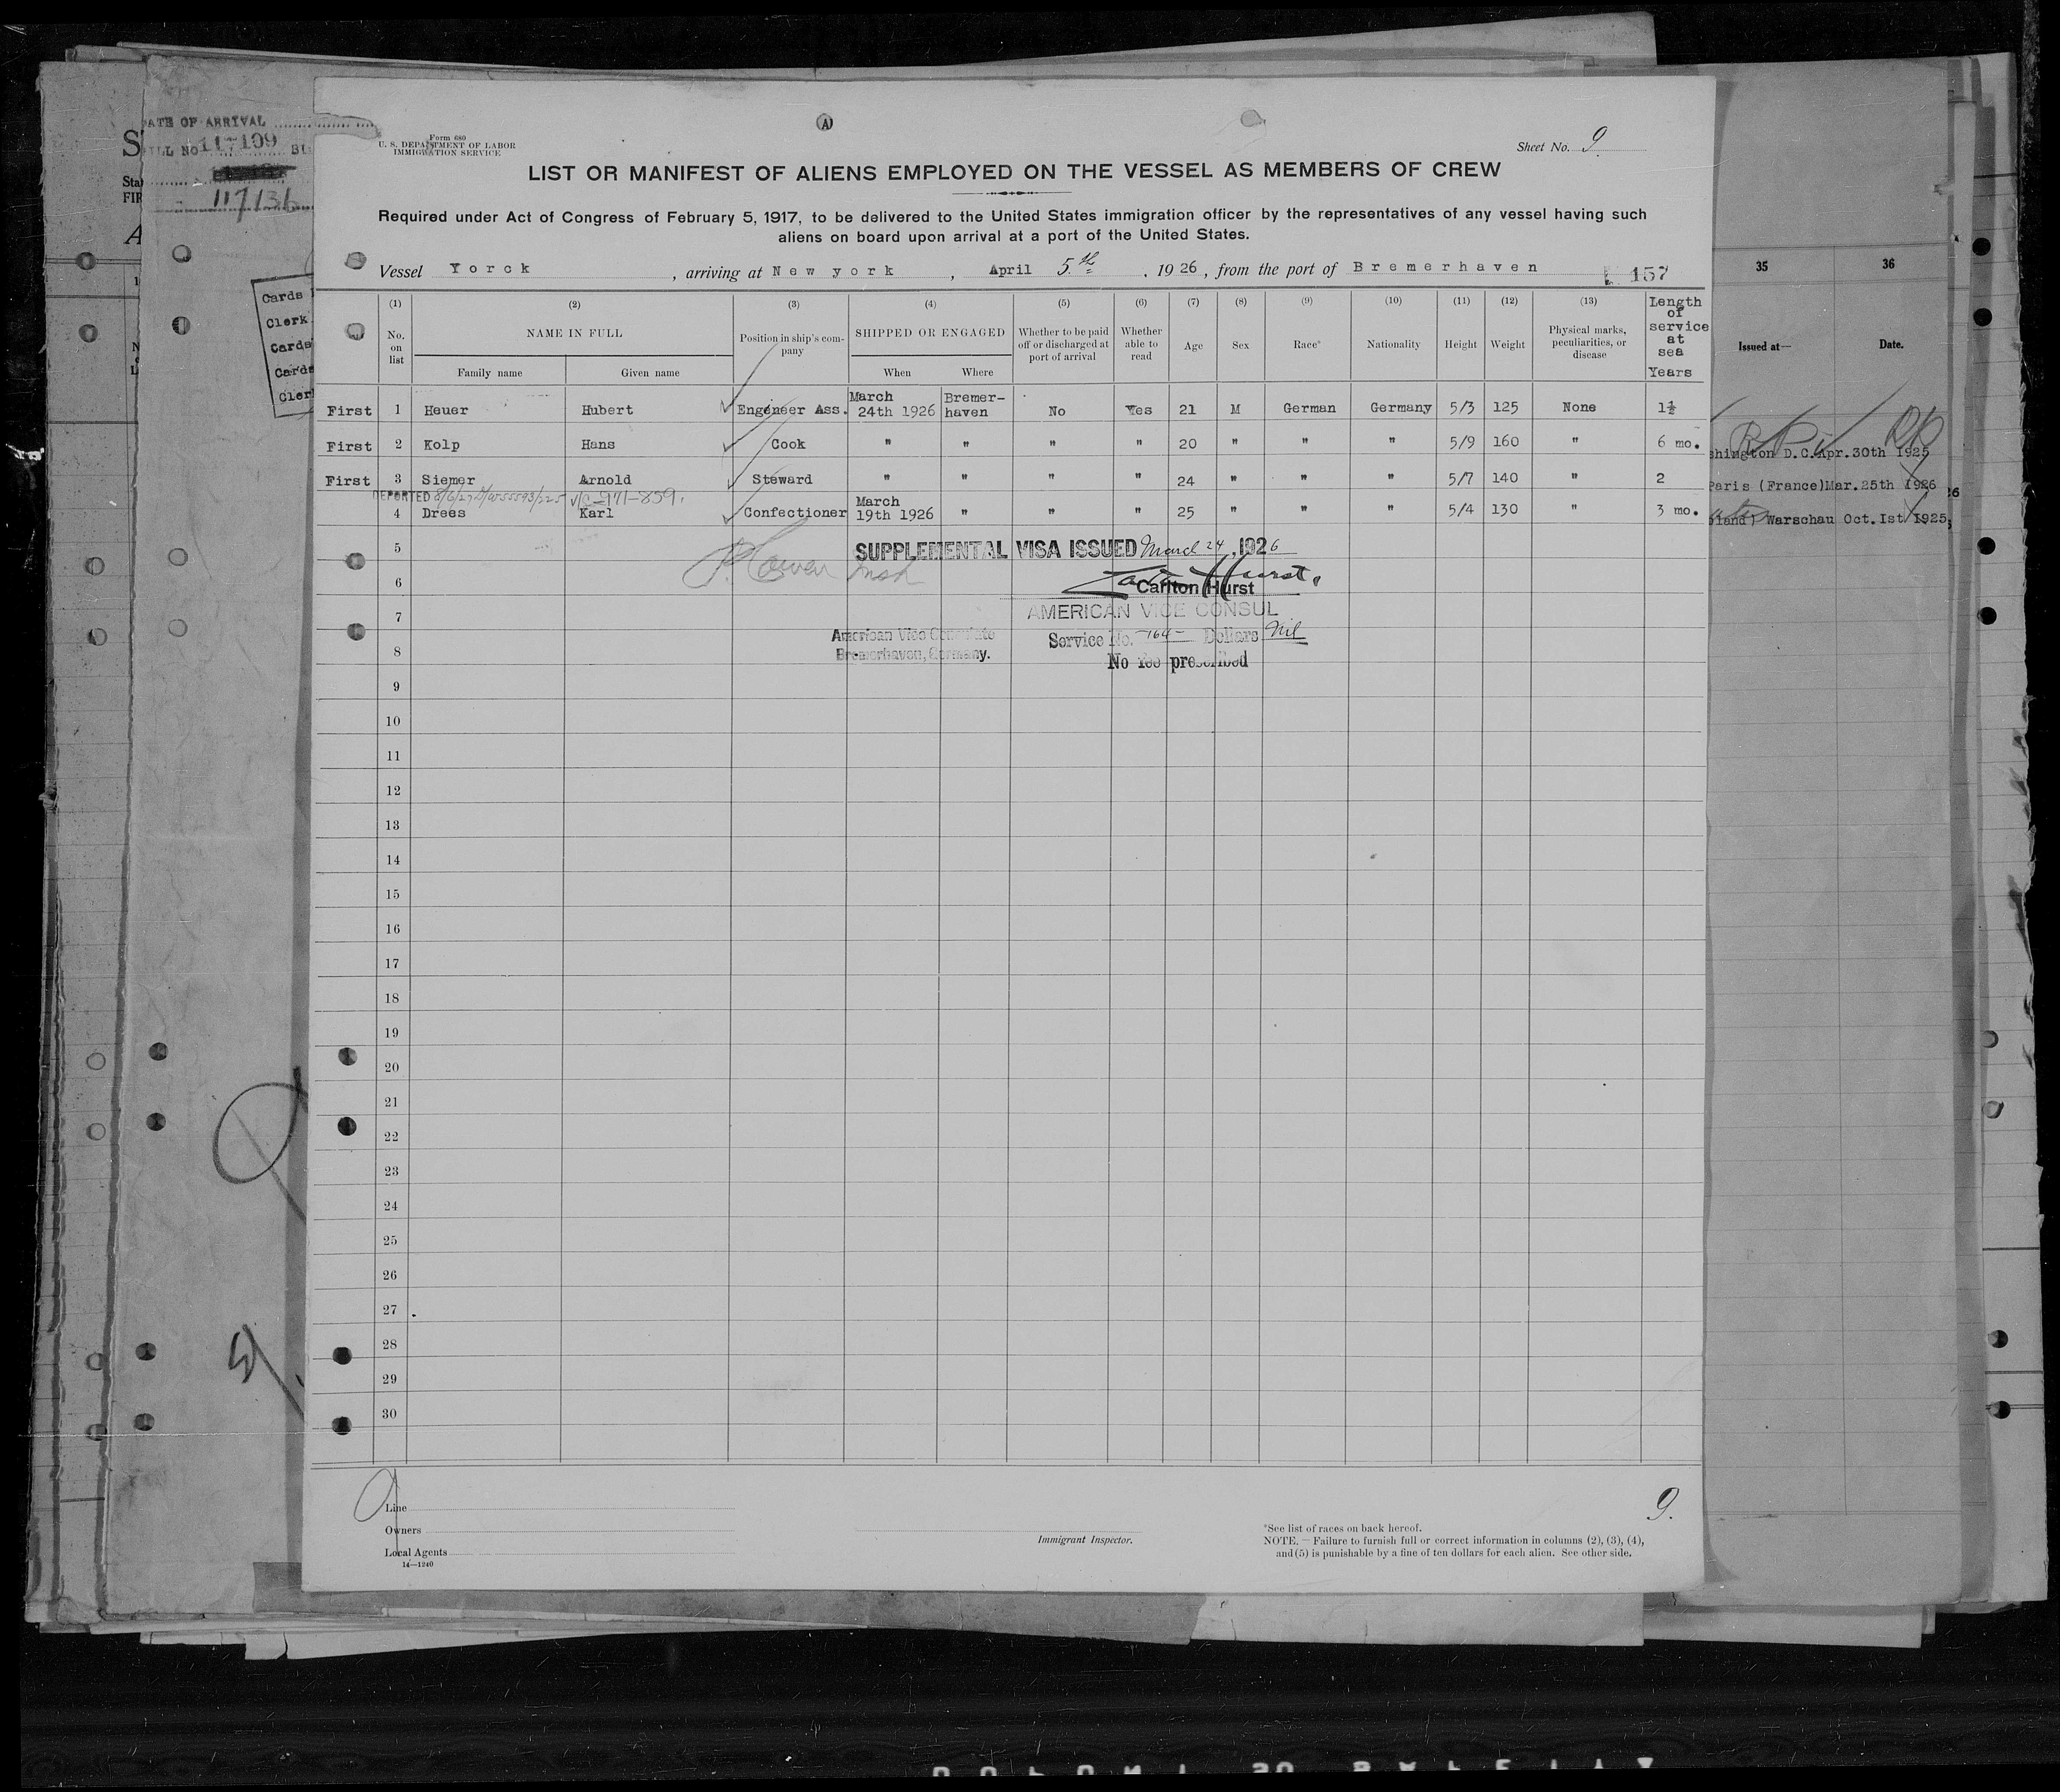 DATE OF ARRIVAL
117109
117136
Cards
Clerk
Cards
Cards
Clerk
A
Form 680
U. S. DEPARTMENT OF LABOR
IMMIGRATION SERVICE
Sheet No. 9.
LIST OR MANIFEST OF ALIENS EMPLOYED ON THE VESSEL AS MEMBERS OF CREW
Required under Act of Congress of February 5, 1917, to be delivered to the United States immigration officer by the representatives of any vessel having such
aliens on board upon arrival at a port of the United States.
Vessel Yorck, arriving at New york, April 5th, 1926, from the port of Bremerhaven 157
(1) (2) (3) (4) (5) (6) (7) (8) (9) (10) (11) (12) (13) Length of service at sea Years
No. on list NAME IN FULL Position in ship's company SHIPPED OR ENGAGED Whether to be paid off or discharged at port of arrival Whether able to read Age Sex Race* Nationality Height Weight Physical marks, peculiarities, or disease
Family name Given name When Where
First 1 Heuer Hubert Engeneer Ass. March 24th 1926 Bremer-haven No Yes 21 M German Germany 5/3 125 None 1½
First 2 Kolp Hans Cook " " " " 20 " " " 5/9 160 " 6 mo.
First 3 Siemer Arnold Steward " " " " 24 " " " 5/7 140 " 2
DEPORTED 8/6/27
4 Drees Karl Confectioner March 19th 1926 " " " 25 " " " 5/4 130 " 3 mo.
5 SUPPLEMENTAL VISA ISSUED March 24, 1926
6 Carlton Hurst
7 AMERICAN VICE CONSUL
American Vice Consulate Service No. 164 Dollars Nil
8 Bremerhaven, Germany. No fee prescribed
9
10
11
12
13
14
15
16
17
18
19
20
21
22
23
24
25
26
27
28
29
30
Line
Owners
Local Agents
14—1240
Immigrant Inspector.
9.
*See list of races on back hereof.
NOTE.—Failure to furnish full or correct information in columns (2), (3), (4),
and (5) is punishable by a fine of ten dollars for each alien. See other side.
35 36
Issued at— Date.
shington D.C. Apr. 30th 1925
Paris (France) Mar. 25th 1926
Warschau Oct. 1st 1925